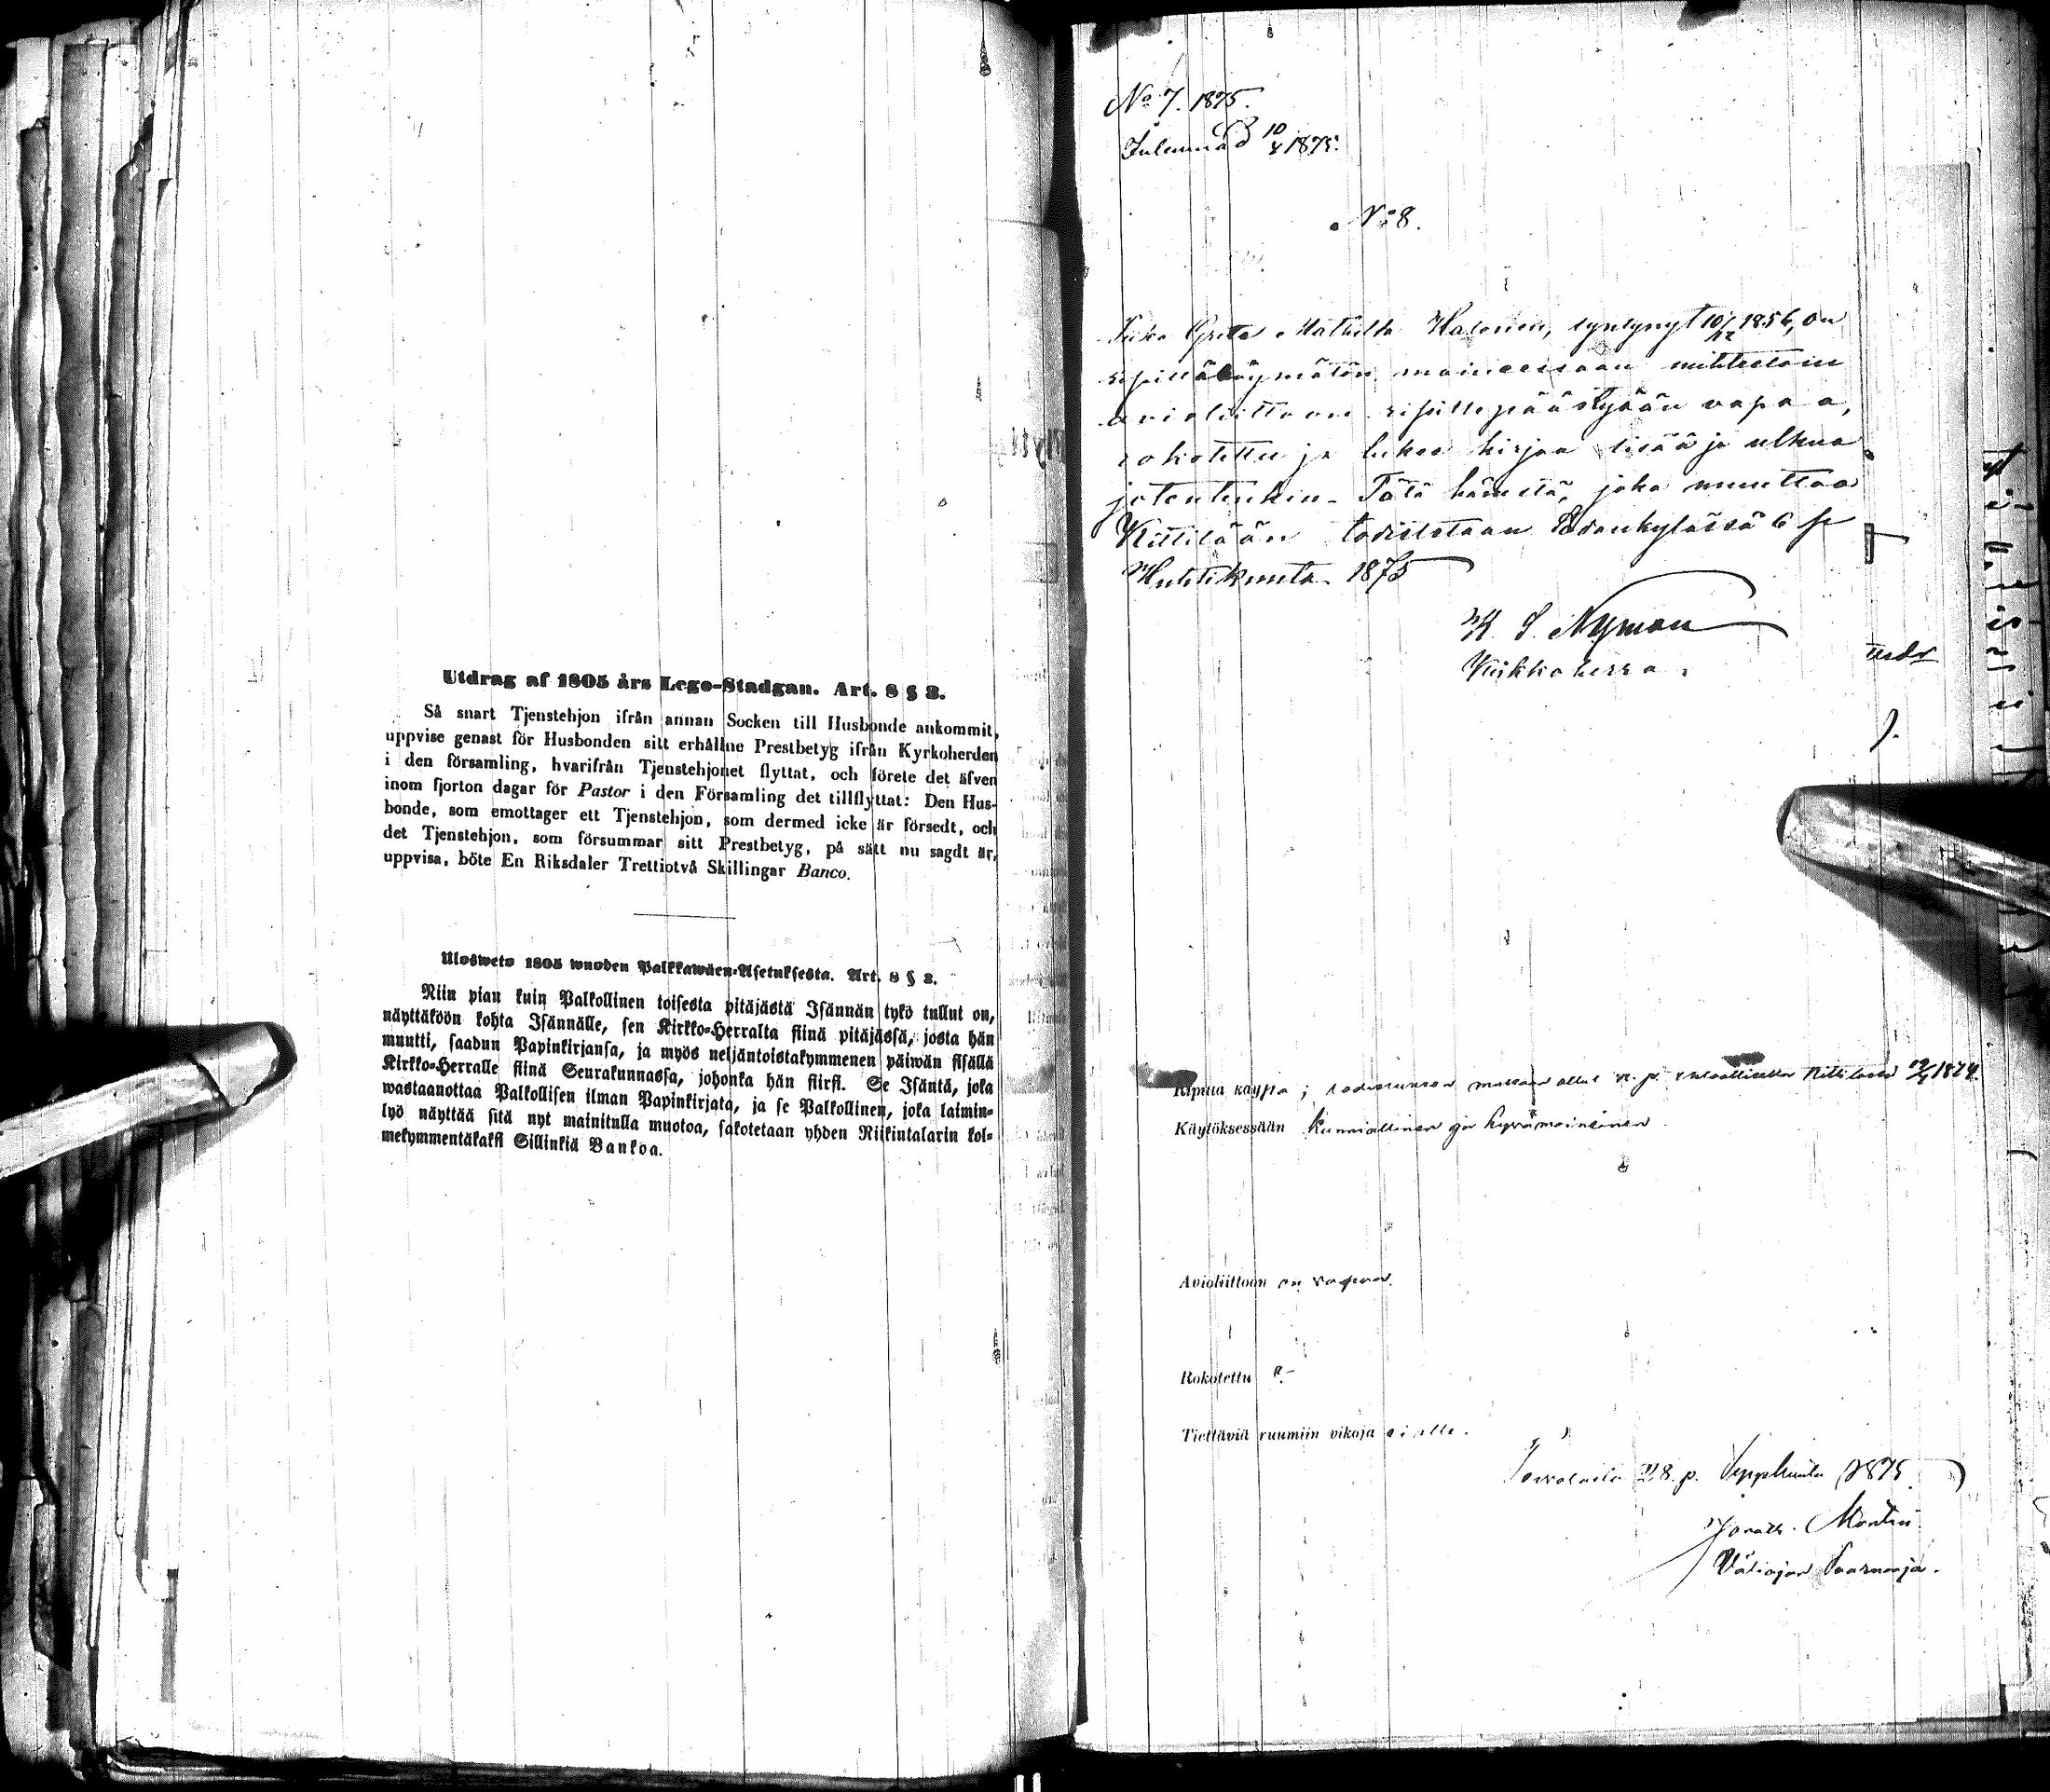 Utdrag af 1805 års Lego-Stadgan. Art. 8 § 3.
Så snart Tjenstehjon ifrån annan Socken till Husbonde ankommit,
uppvise genast för Husbonden sitt erhållne Prestbetyg ifrån Kyrkoherden
i den församling, hvarifrån Tjenstehjonet flyttat, och förete det äfven
inom fjorton dagar för Pastor i den Församling det tillflyttat: Den Hus-
bonde, som emottager ett Tjenstehjon, som dermed icke är försedt, och
det Tjenstehjon, som försummar sitt Prestbetyg, på sätt nu sagdt är,
uppvisa, böte En Riksdaler Trettiotvå Skillingar Banco.
Ulosweto 1805 wuoden Palkkawäen-Asetuksesta. Art. 8 § 3.
Niin pian kuin Palkollinen toisesta pitäjästä Isännän tykö tullut on,
näyttäköön kohta Isännälle, sen Kirkko-Herralta siinä pitäjässä, josta hän
muutti, saadun Papinkirjansa, ja myös neljäntoistakymmenen päiwän sisällä
Kirkko-Herralle siinä Seurakunnassa, johonka hän siirsi. Se Isäntä, joka
wastaanottaa Palkollisen ilman Papinkirjata, ja se Palkollinen, joka laimin-
lyö näyttää sitä nyt mainitulla muotoa, sakotetaan yhden Riikintalarin kol-
mekymmentäkaksi Sillinkiä Bankoa.
No 7. 1875.
1875.
No 8.
Mathilda Halonen, syntynyt 10/12 1856, on
ripilläkäymätön, maineessaan nuhteetoin
avioliittoon ripillepäästyään vapaa,
rokotettu ja lukee kirjaa sisää ja ulkoa
jotentenkin. Tätä hänestä, joka muuttaa
Kittilään todistetaan Sodankylässä 6 p
Huhtikuuta 1875
K. S. Nyman
Kirkkoherra.
Ripillä käypä; todistuksen mukaan ollut Kittilässä 1874.
Käytöksessään kunniallinen ja hyvämaineinen.
Avioliittoon on vapaa.
Rokotettu
Tiettäviä ruumiin vikoja ei olle.
28. p. Syyskuuta 1875
Montin
Väliajan Saarnaaja.